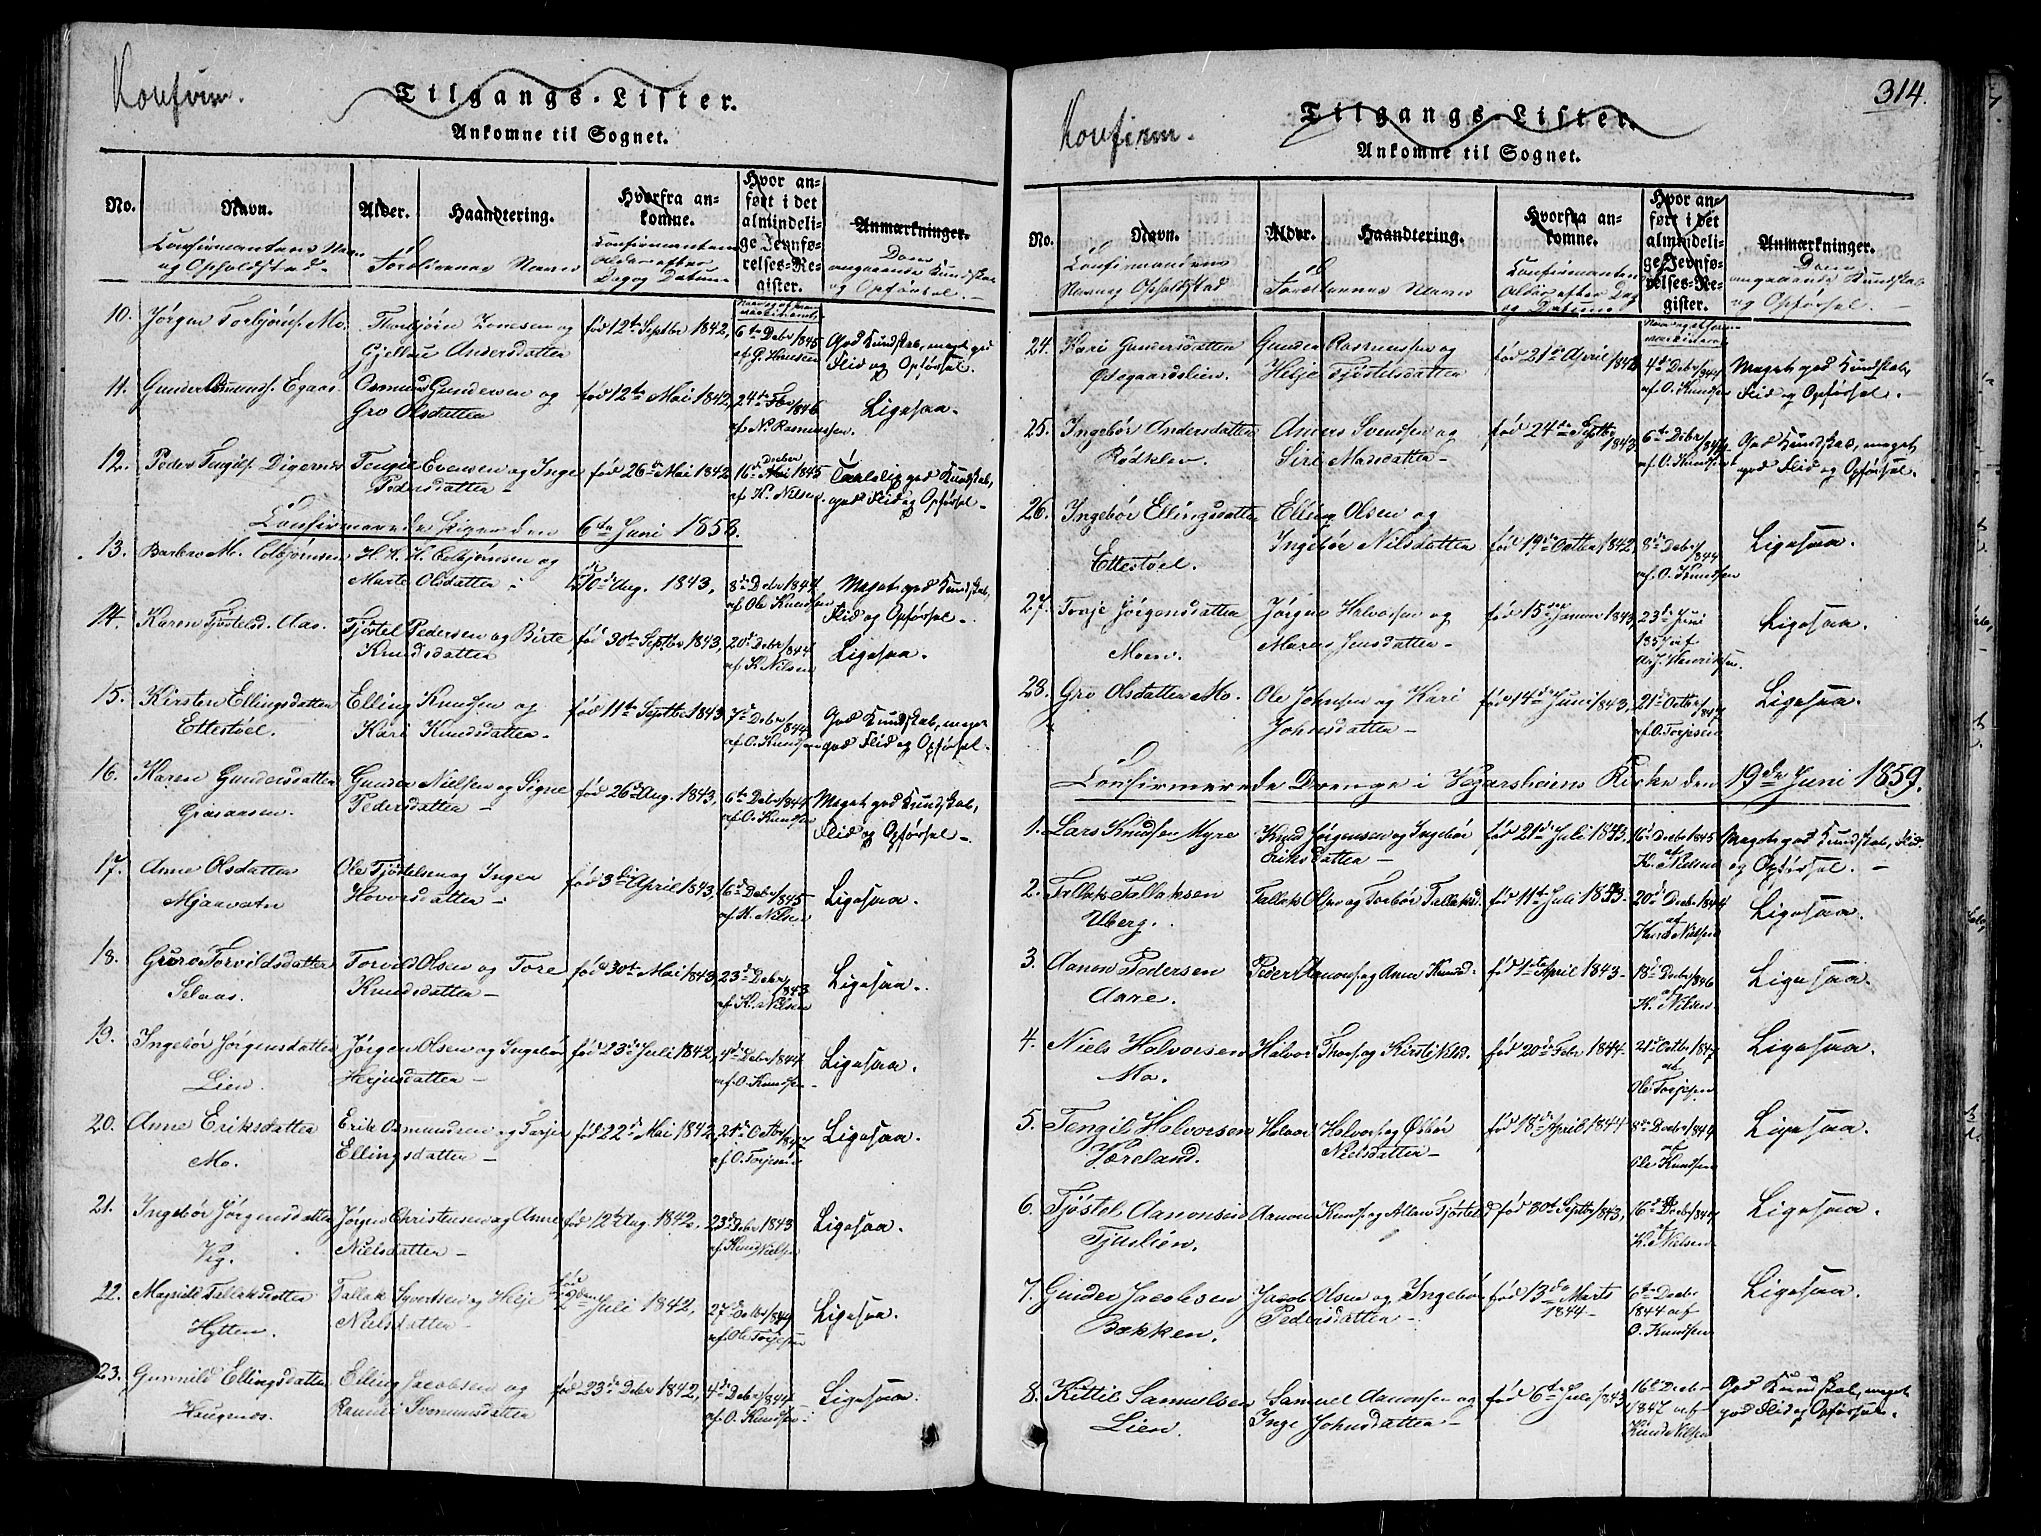 Konfirm.
Tilgangs-Lister.
Ankomne til Sognet.
No.
Navn.
Alder.
Haandtering.
Hvorfra ankomne.
Hvor anført i det almindelige Jevnførelses-Register.
Anmærkninger.
Confirmantens Navn og Opholdstad.
Forældrenes Navn
Confirmantens Alder efter Dag og Datum
Dom angaaende Kundskab og Opførsel.
10. Jørgen Torbjøns. Mo. Thorbjørn Jensen og født 12te Septbr 1842, 6te Debr/1845 God Kundskab, meget god
Gjellau Andersdatter af G. Hansen Flid og Opførsel.
11. Gunder Osmunds. Egaas. Osmund Gundersen og født 12te Mai 1842, 24de Fbr/1846 Ligesaa.
Gro Olsdatter af N. Rasmussen.
12. Peder Tengels. Digernæs Tengel Evensen og Inge født 26de Mai 1842, 16de Decbr 1845 Taalelig god Kundskab,
Pedersdatter - af K. Nilsen god Flid og Opførsel -
Confirmerede Piger den 6te Juni 1858.
13. Barbro M. Esbjørnsen H. K. H. Esbjørnsen og 10de Aug. 1843, 8de Debr 1844 Meget god Kundskab,
Marte Olsdatter af Ole Knudsen Flid og Opførsel -
14. Karen Tjøstelsd. Aas. Tjøstel Pedersen og Birte fød 30te Septbr 1843, 20de Debr/1844 Ligesaa.
Knudsdatter af K. Nilsen
15. Kirsten Ellingsdatter Elling Knudsen og fød 11te Septbr 1843 7de Debr/1844 God Kundskab, meget
Ettestøel. Kari Knudsdatter - af O. Knudsen god Flid og Opførsel.
16. Karen Gundersdatter Gunder Nielsen og Signe fød 26de Aug. 1843, 6te Debr/1844 Meget god Kundskab,
Graaaasen. Pedersdatter - af O. Knudsen Flid og Opførsel -
17. Anne Olsdatter Ole Tjøstelsen og Inger fød 3die April 1843, 16de Debr/1845 Ligesaa.
Mjaavatn Hovorsdatter - af K. Nilsen
18. Guro Torvildsdatter Torvild Olsen og Tore fød 30te Mai 1843, 23de Debr/1843 Ligesaa.
Selaas. Knudsdatter - af K. Nilsen
19. Ingebør Jørgensdatter Jørgen Olsen og Ingebør fød 23de Juli 1842, 4de Debr/1844 Ligesaa.
Lien. Herjusdatter - af O. Knudsen -
20. Anne Eriksdatter Erik Osmundsen og Tarjer fød 22de Mai 1842, 21de Octbr/1847 Ligesaa.
Mo. Ellingsdatter - af O. Torjesen
21. Ingebør Jørgensdatter Jørgen Christensen og Anne fød 12te Aug. 1842, 23de Debr 1843 Ligesaa.
Vig. Nielsdatter - af Knud Nielsen
22. Magnild Tallaksdatter Tallak Syvertsen og Helje fød 2den Juli 1842, 27de Debr/1849 Ligesaa.
Hytten. Nielsdatter - af Ole Torjesen
23. Gunnild Ellingsdatter Elling Jacobsen og fød 23de Debr 1842, 4de Debr/1844 Ligesaa.
Haugenæs. Svenunsdatter af O. Knudsen
314.
Konfirm.
Tilgangs-Lister.
Ankomne til Sognet.
No.
Navn.
Alder.
Haandtering.
Hvorfra ankomne.
Hvor anført i det almindelige Jevnførelses-Register.
Anmærkninger.
Confirmandens Navn og Opholdstad
Forældrenes Navn
Confirmantens Alder efter Dag og Datum
Dom angaaende Kundskab og Opførsel.
24. Kari Gundersdatter Gunder Rasmussen og født 21de April 1842 4de Debr/1844 Meget god Kundskab,
Ødegaardslien. Helje Tjøstelsdatter af O. Knudsen Flid og Opførsel.
25. Ingebør Andersdatter Anders Svendsen og født 24de Septbr 1843 6te Debr/1844 God Kundskab, meget
Rødklev. Siri Madsdatter - af O. Knudsen god Flid og Opførsel.
26. Ingebør Ellingsdatter Elling Olsen og
Ettestøel. Ingebør Nilsdatter fød 19de Octbr 1842, 8de Debr/1844 Ligesaa.
af O. Knudsen
27. Tarje Jørgensdatter Jørgen Halvorsen og fød 15de Januar 1843, 23de Juni Ligesaa.
Moen. Maren Jensdatter - 1857 af
Henriksen.
28. Gro Olsdatter Mo. Ole Johnsen og Kari fød 14de Juni 1843, 21de Octbr/1847 Ligesaa.
Johnsdatter - af O. Torjesen
Confirmerede Drenge i Vegarsheiens Kirke den 19de Juni 1859.
1. Lars Knudsen Myre Knud Jørgensen og Ingebør fød 21de Juli 1843, 16de Debr 1845 Meget god Kundskab, Flid
Eriksdatter - af K. Nilsen og Opførsel. -
2. Tallak Tallaksen Tallak Olsen og Torbør Tallaksd. fød 11te Juli 1843. 20de Debr 1844 Ligesaa.
Uberg. af Knud Nielsen
3. Aanon Pedersen Peder Aanons. og Anne Knudsd. fød 1te April 1843. 18de Debr/1846 Ligesaa.
Aare. af K. Nilsen
4. Niels Halvorsen Halvor Thors. og Kirsti Nilsd. fød 20de Febr 1844. 21de Octbr 1847 Ligesaa.
Mo. af Ole Torjesen
5. Tengil Halvorsen Halvor Halvors. og Østbør fød 18de April 1844 8de Decbr/1844 Ligesaa.
Væreland. Nielsdatter - af Ole Knudsen
6. Tjøstel Aanonsen Aanon Knuds. og Tjøstelsd fød 30te Septbr/1843, 16de Debr/1847 Ligesaa.
Tjuslien. af K. Nielsen.
7. Gunder Jacobsen Jacob Olsen og Ingebør fød 13de Marts 1844 - 6te Decbr Ligesaa.
Bakken. Pedersdatter - 1844 af
O. Knudsen
8. Kittil Samuelsen Samuel Aanonsen og fød 6te Juli 1843 16de Decbr God Kundskab, meget
Lien. Inge Johnsdatter - 1847 af god Flid og Opførsel.
Knud Nilsen